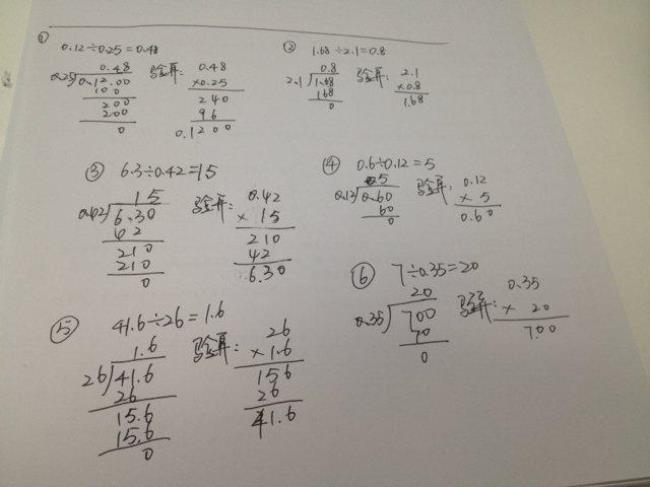 ① 0.12÷0.25=0.48
0.48
0.25 0.12.00
100
200
200
0
验算:
0.48
×0.25
240
96
0.1200
② 1.68÷2.1=0.8
0.8
2.1 1.68
168
0
验算:
2.1
×0.8
1.68
③ 6.3÷0.42=15
15
0.42 6.30
42
210
210
0
验算:
0.42
× 15
210
42
6.30
④ 0.6÷0.12=5
5
0.12 0.60
60
0
验算:
0.12
× 5
0.60
⑤ 41.6÷26=1.6
1.6
26 41.6
26
15.6
15.6
0
验算:
26
×1.6
156
26
41.6
⑥ 7÷0.35=20
20
0.35 700
70
0
验算:
0.35
× 20
7.00